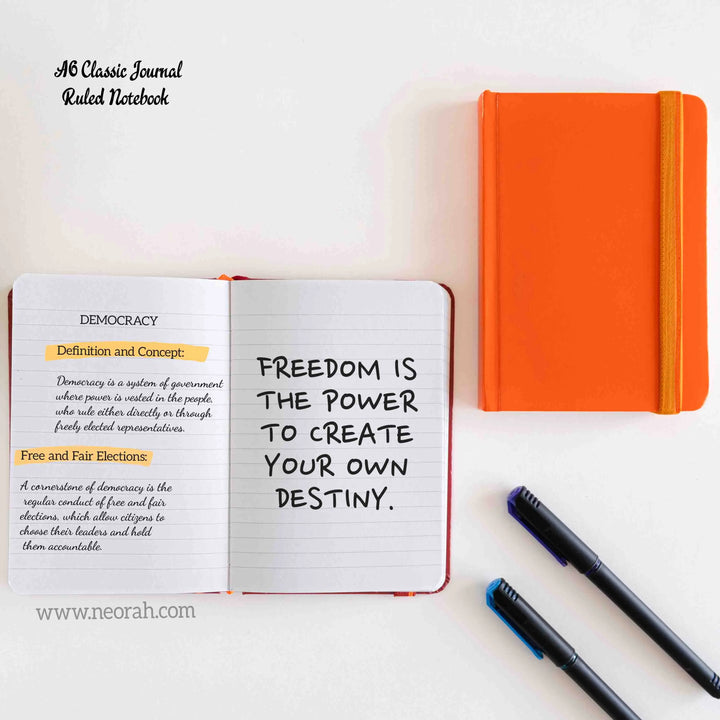 A6 Classic Journal
Ruled Notebook
DEMOCRACY
Definition and Concept:
Democracy is a system of government
where power is vested in the people,
who rule either directly or through
freely elected representatives.
Free and Fair Elections:
A cornerstone of democracy is the
regular conduct of free and fair
elections, which allow citizens to
choose their leaders and hold
them accountable.
FREEDOM IS
THE POWER
TO CREATE
YOUR OWN
DESTINY.
www.neorah.com